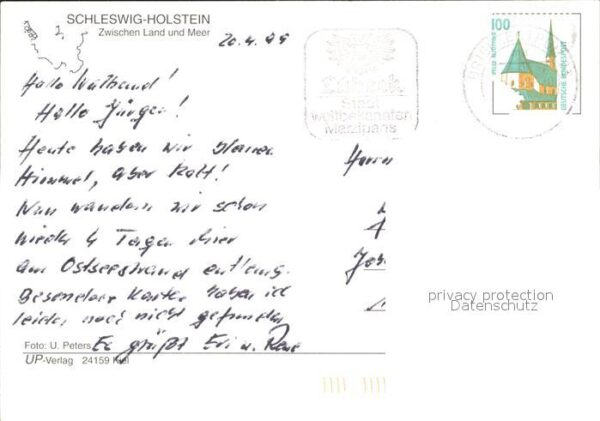 SCHLESWIG-HOLSTEIN
Zwischen Land und Meer
20.4.99
100
DEUTSCHE BUNDESPOST
Lübeck
Stadt
weltbekannten
Marzipans
Hallo
Hallo Jürgen!
Heute haben wir
Himmel, aber Kalt!
Nun wandern wir schon
wieder 4 Tagen hier
am Ostseestrand entlang.
Besondere Karten haben ich
leider noch nicht gefunden
Es grüßt Evi u. René
Herrn
privacy protection
Datenschutz
Foto: U. Peters
UP-Verlag 24159 Kiel